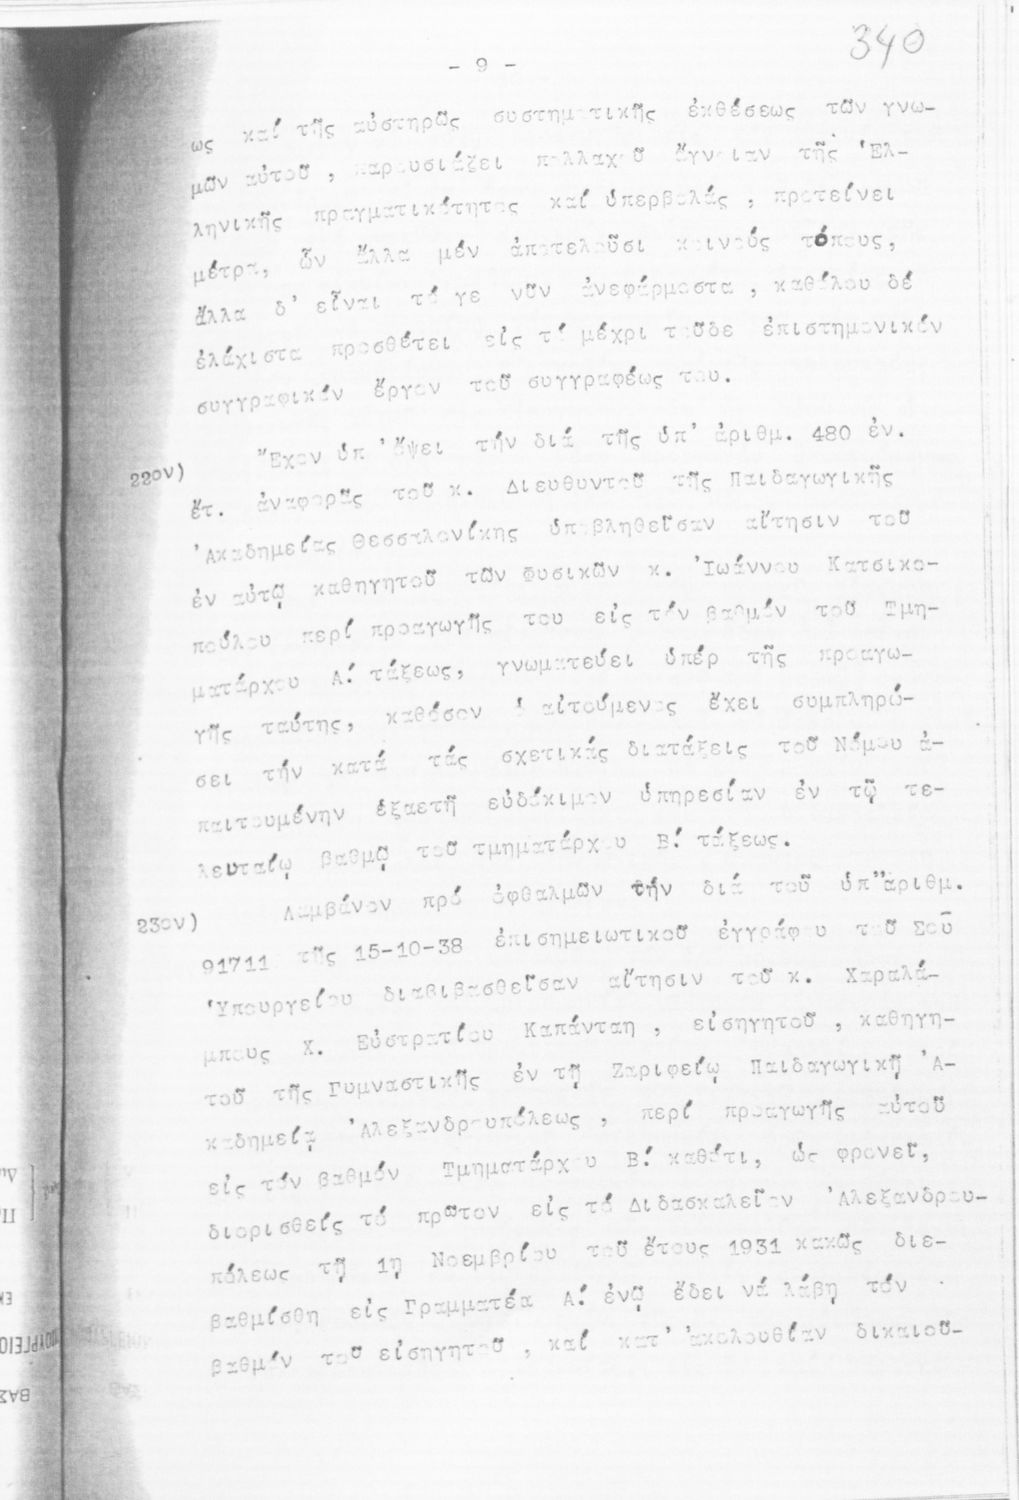 340
- 9 -
ως καί τῆς αὐστηρῶς συστηματικῆς ἐκθέσεως τῶν γνω-
μῶν αὐτοῦ , παρουσιάζει πολλαχοῦ ἄγνοιαν τῆς Ἑλ-
ληνικῆς πραγματικότητος καί ὑπερβολάς , προτείνει
μέτρα, ὧν ἄλλα μέν ἀποτελοῦσι κοινούς τόπους,
ἄλλα δ' εἶναι τό γε νῦν ἀνεφάρμοστα , καθόλου δέ
ἐλάχιστα προσθέτει εἰς τό μέχρι τοῦδε ἐπιστημονικόν
συγγραφικόν ἔργον τοῦ συγγραφέως του.
22ον) Ἔχον ὑπ' ὄψει τήν διά τῆς ὑπ' ἀριθμ. 480 ἐν.
ἔτ. ἀναφορᾶς τοῦ κ. Διευθυντοῦ τῆς Παιδαγωγικῆς
Ἀκαδημείας Θεσσαλονίκης ὑποβληθεῖσαν αἴτησιν τοῦ
ἐν αὐτῷ καθηγητοῦ τῶν Φυσικῶν κ. Ἰωάννου Κατσικο-
πούλου περί προαγωγῆς του εἰς τόν βαθμόν τοῦ Τμη-
ματάρχου Α! τάξεως, γνωματεύει ὑπέρ τῆς προαγω-
γῆς ταύτης, καθόσον ὁ αἰτούμενος ἔχει συμπληρώ-
σει τήν κατά τάς σχετικάς διατάξεις τοῦ Νόμου ἀ-
παιτουμένην ἑξαετῆ εὐδόκιμον ὑπηρεσίαν ἐν τῷ τε-
λευταίῳ βαθμῷ τοῦ τμηματάρχου Β! τάξεως.
23ον) Λαμβάνον πρό ὀφθαλμῶν τήν διά τοῦ ὑπ"ἀριθμ.
91711 τῆς 15-10-38 ἐπισημειωτικοῦ ἐγγράφου τοῦ Σοῦ
Ὑπουργείου διαβιβασθεῖσαν αἴτησιν τοῦ κ. Χαραλά-
μπους Χ. Εὐστρατίου Καπάνταη , εἰσηγητοῦ , καθηγη-
τοῦ τῆς Γυμναστικῆς ἐν τῇ Ζαριφείῳ Παιδαγωγικῇ Ἀ-
καδημείᾳ Ἀλεξανδρουπόλεως , περί προαγωγῆς αὐτοῦ
εἰς τόν βαθμόν Τμηματάρχου Β! καθότι, ὡς φρονεῖ,
διορισθείς τό πρῶτον εἰς τό Διδασκαλεῖον Ἀλεξανδρου-
πόλεως τῇ 1ῃ Νοεμβρίου τοῦ ἔτους 1931 κακῶς διε-
βαθμίσθη εἰς Γραμματέα Α! ἐνῷ ἔδει νά λάβῃ τόν
βαθμόν τοῦ εἰσηγητοῦ , καί κατ' ἀκολουθίαν δικαιοῦ-